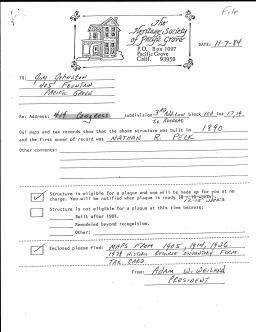 File
The
Heritage Society
of Pacific Grove
P.O. Box 1007
Pacific Grove
Calif. 93950
DATE: 11-7-84
TO: Jim Johnston
405 Fountain
Pacific Grove
Re: Address: 414 Congress subdivision 3rd Addition block 100 lot 17,19
to Retreat
Our maps and tax records show that the above structure was built in 1890
and the first owner of record was NATHAN R. PECK
Other comments:
Structure is eligible for a plaque and one will be made up for you at no
charge. You will be notified when plaque is ready
Structure is not eligible for a plaque at this time because:
Built after 1901.
Remodeled beyond recognition.
Other:
Enclosed please find: MAPS FROM 1905, 1914, 1926
1978 HISTORIC RESOURCE INVENTORY FORM
TAX CARD
From: ADAM W. WEILAND
PRESIDENT